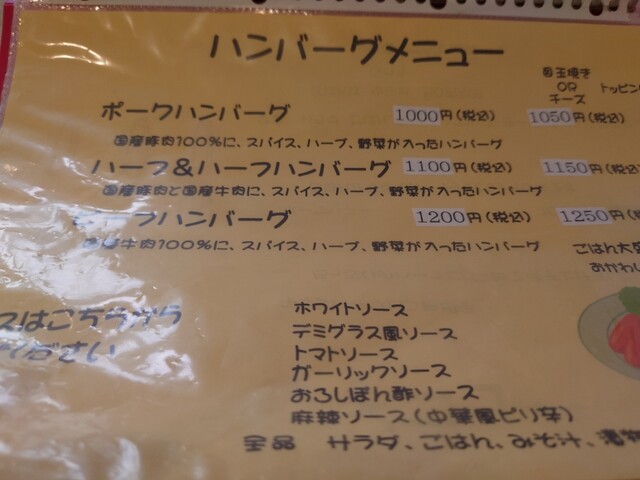 ハンバーグメニュー
目玉焼き
OR
チーズ
トッピン
ポークハンバーグ 1000円(税込) 1050円(税込)
国産豚肉100%に、スパイス、ハーブ、野菜が入ったハンバーグ
ハーフ&ハーフハンバーグ 1100円(税込) 1150円(税込)
国産豚肉と国産牛肉に、スパイス、ハーブ、野菜が入ったハンバーグ
ビーフハンバーグ 1200円(税込) 1250円(税
国産牛肉100%に、スパイス、ハーブ、野菜が入ったハンバーグ
ごはん大盛
おかわり
スはこちらから
ください
ホワイトソース
デミグラス風ソース
トマトソース
ガーリックソース
おろしぽん酢ソース
麻辣ソース(中華風ピリ辛)
全品 サラダ、ごはん、みそ汁、漬物